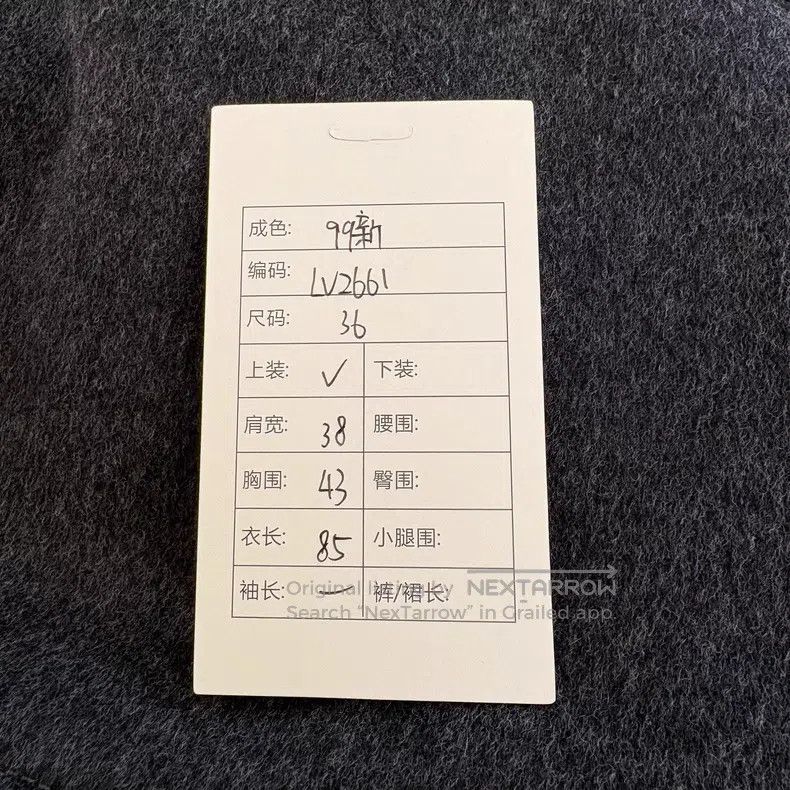 成色: 99新
编码: LV2661
尺码: 36
上装: ✓ 下装:
肩宽: 38 腰围:
胸围: 43 臀围:
衣长: 85 小腿围:
袖长: — 裤/裙长:
Original listing by NEXTARROW
Search "NexTarrow" in Grailed app